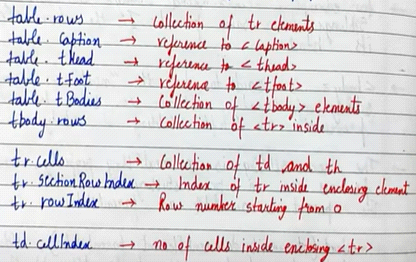 table.rows → collection of tr elements
table.Caption → reference to <Caption>
table.tHead → reference to <thead>
table.tfoot → reference to <tfoot>
table.tBodies → Collection of <tbody> elements
tbody.rows → collection of <tr> inside
tr.cells → Collection of td and th
tr.sectionRowIndex → Index of tr inside enclosing element
tr.rowIndex → Row number starting from 0
td.cellIndex → no of cells inside enclosing <tr>